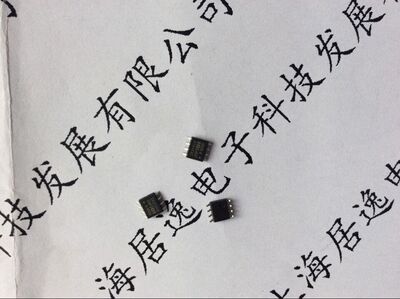 技发展有限公司
海居逸电子科技发展
海居逸电